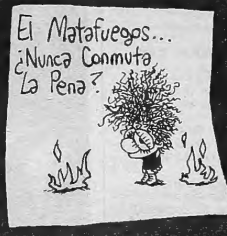 El Matafuegos...
¿Nunca Conmuta
La Pena?